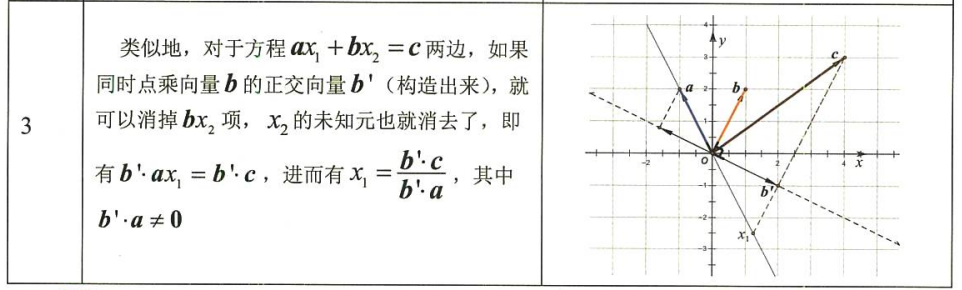 3
类似地，对于方程 ax₁ + bx₂ = c 两边，如果
同时点乘向量 b 的正交向量 b'（构造出来），就
可以消掉 bx₂ 项， x₂ 的未知元也就消去了，即
有 b'· ax₁ = b'· c ，进而有 x₁ = b'· c / b'· a ，其中
b'· a ≠ 0
4
y
c
3
a
2
b
1
-2
o
2
4
x
-1
b'
-2
x₁
-3